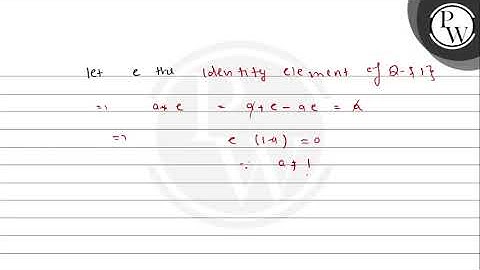 PW
let e the Identity element of Q-{1}
=) a*e = a+e-ae = a
=> e (1-a) = 0
∵ a ≠ 1